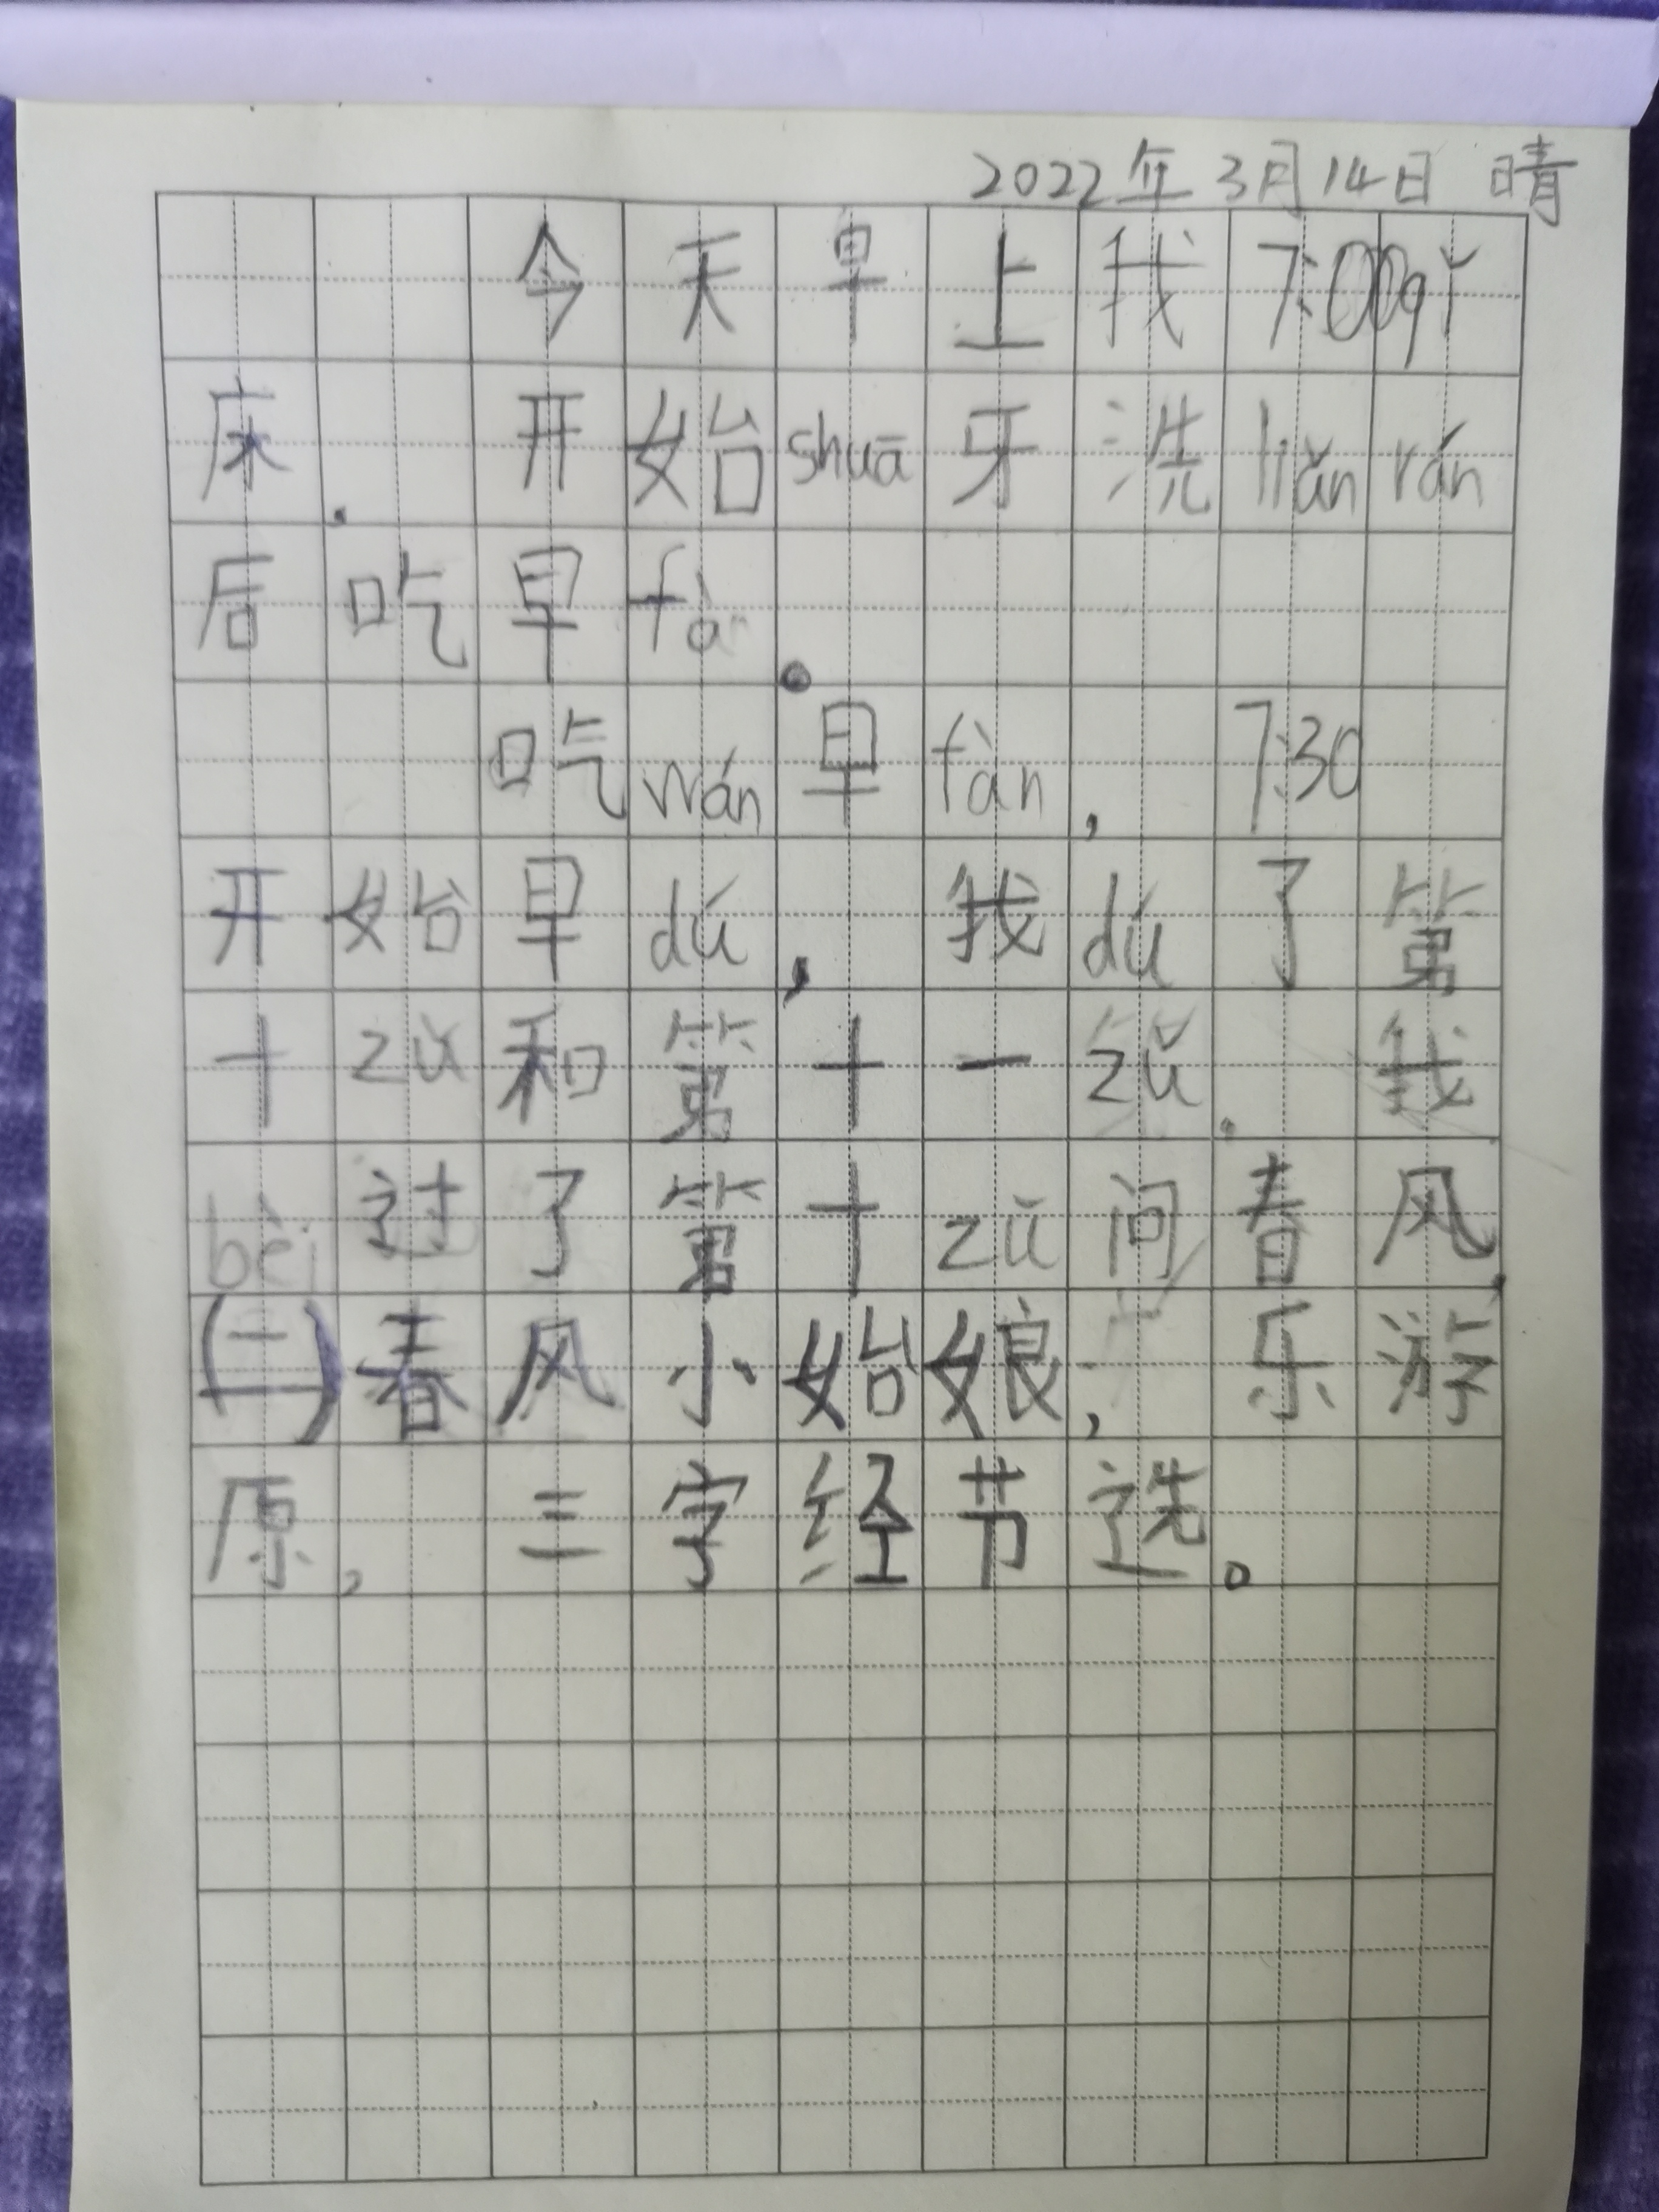 2022年3月14日 晴
今天早上我7:00qǐ
床. 开始shuā牙洗liǎn rán
后吃早fà
。
吃wán早fàn, 7:30
开始早dú, 我dú了第
十zǔ和第十一zǔ. 我
bèi过了第十zǔ问春风,
(二)春风小始娘, 乐游
原, 三字经节选。